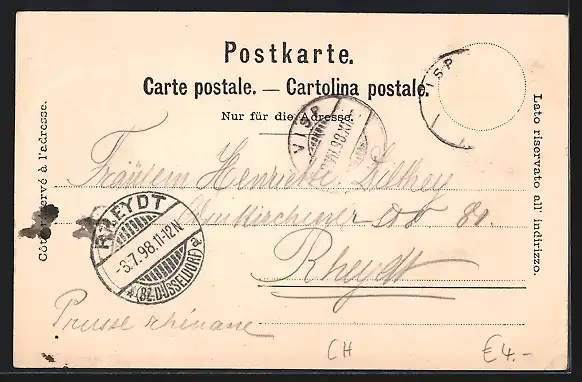 Postkarte.
Carte postale. — Cartolina postale.
Nur für die Adresse.
Côté réservé à l'adresse.
Lato riservato all' indirizzo.
VISP
VISP
VII.98.XI
Fräulein Henriette Dilthey
81.
Rheydt
RHEYDT
-8.7.98.11-12N.
*(BZ.DÜSSELDORF)a
Prusse rhénane
CH
€4.-